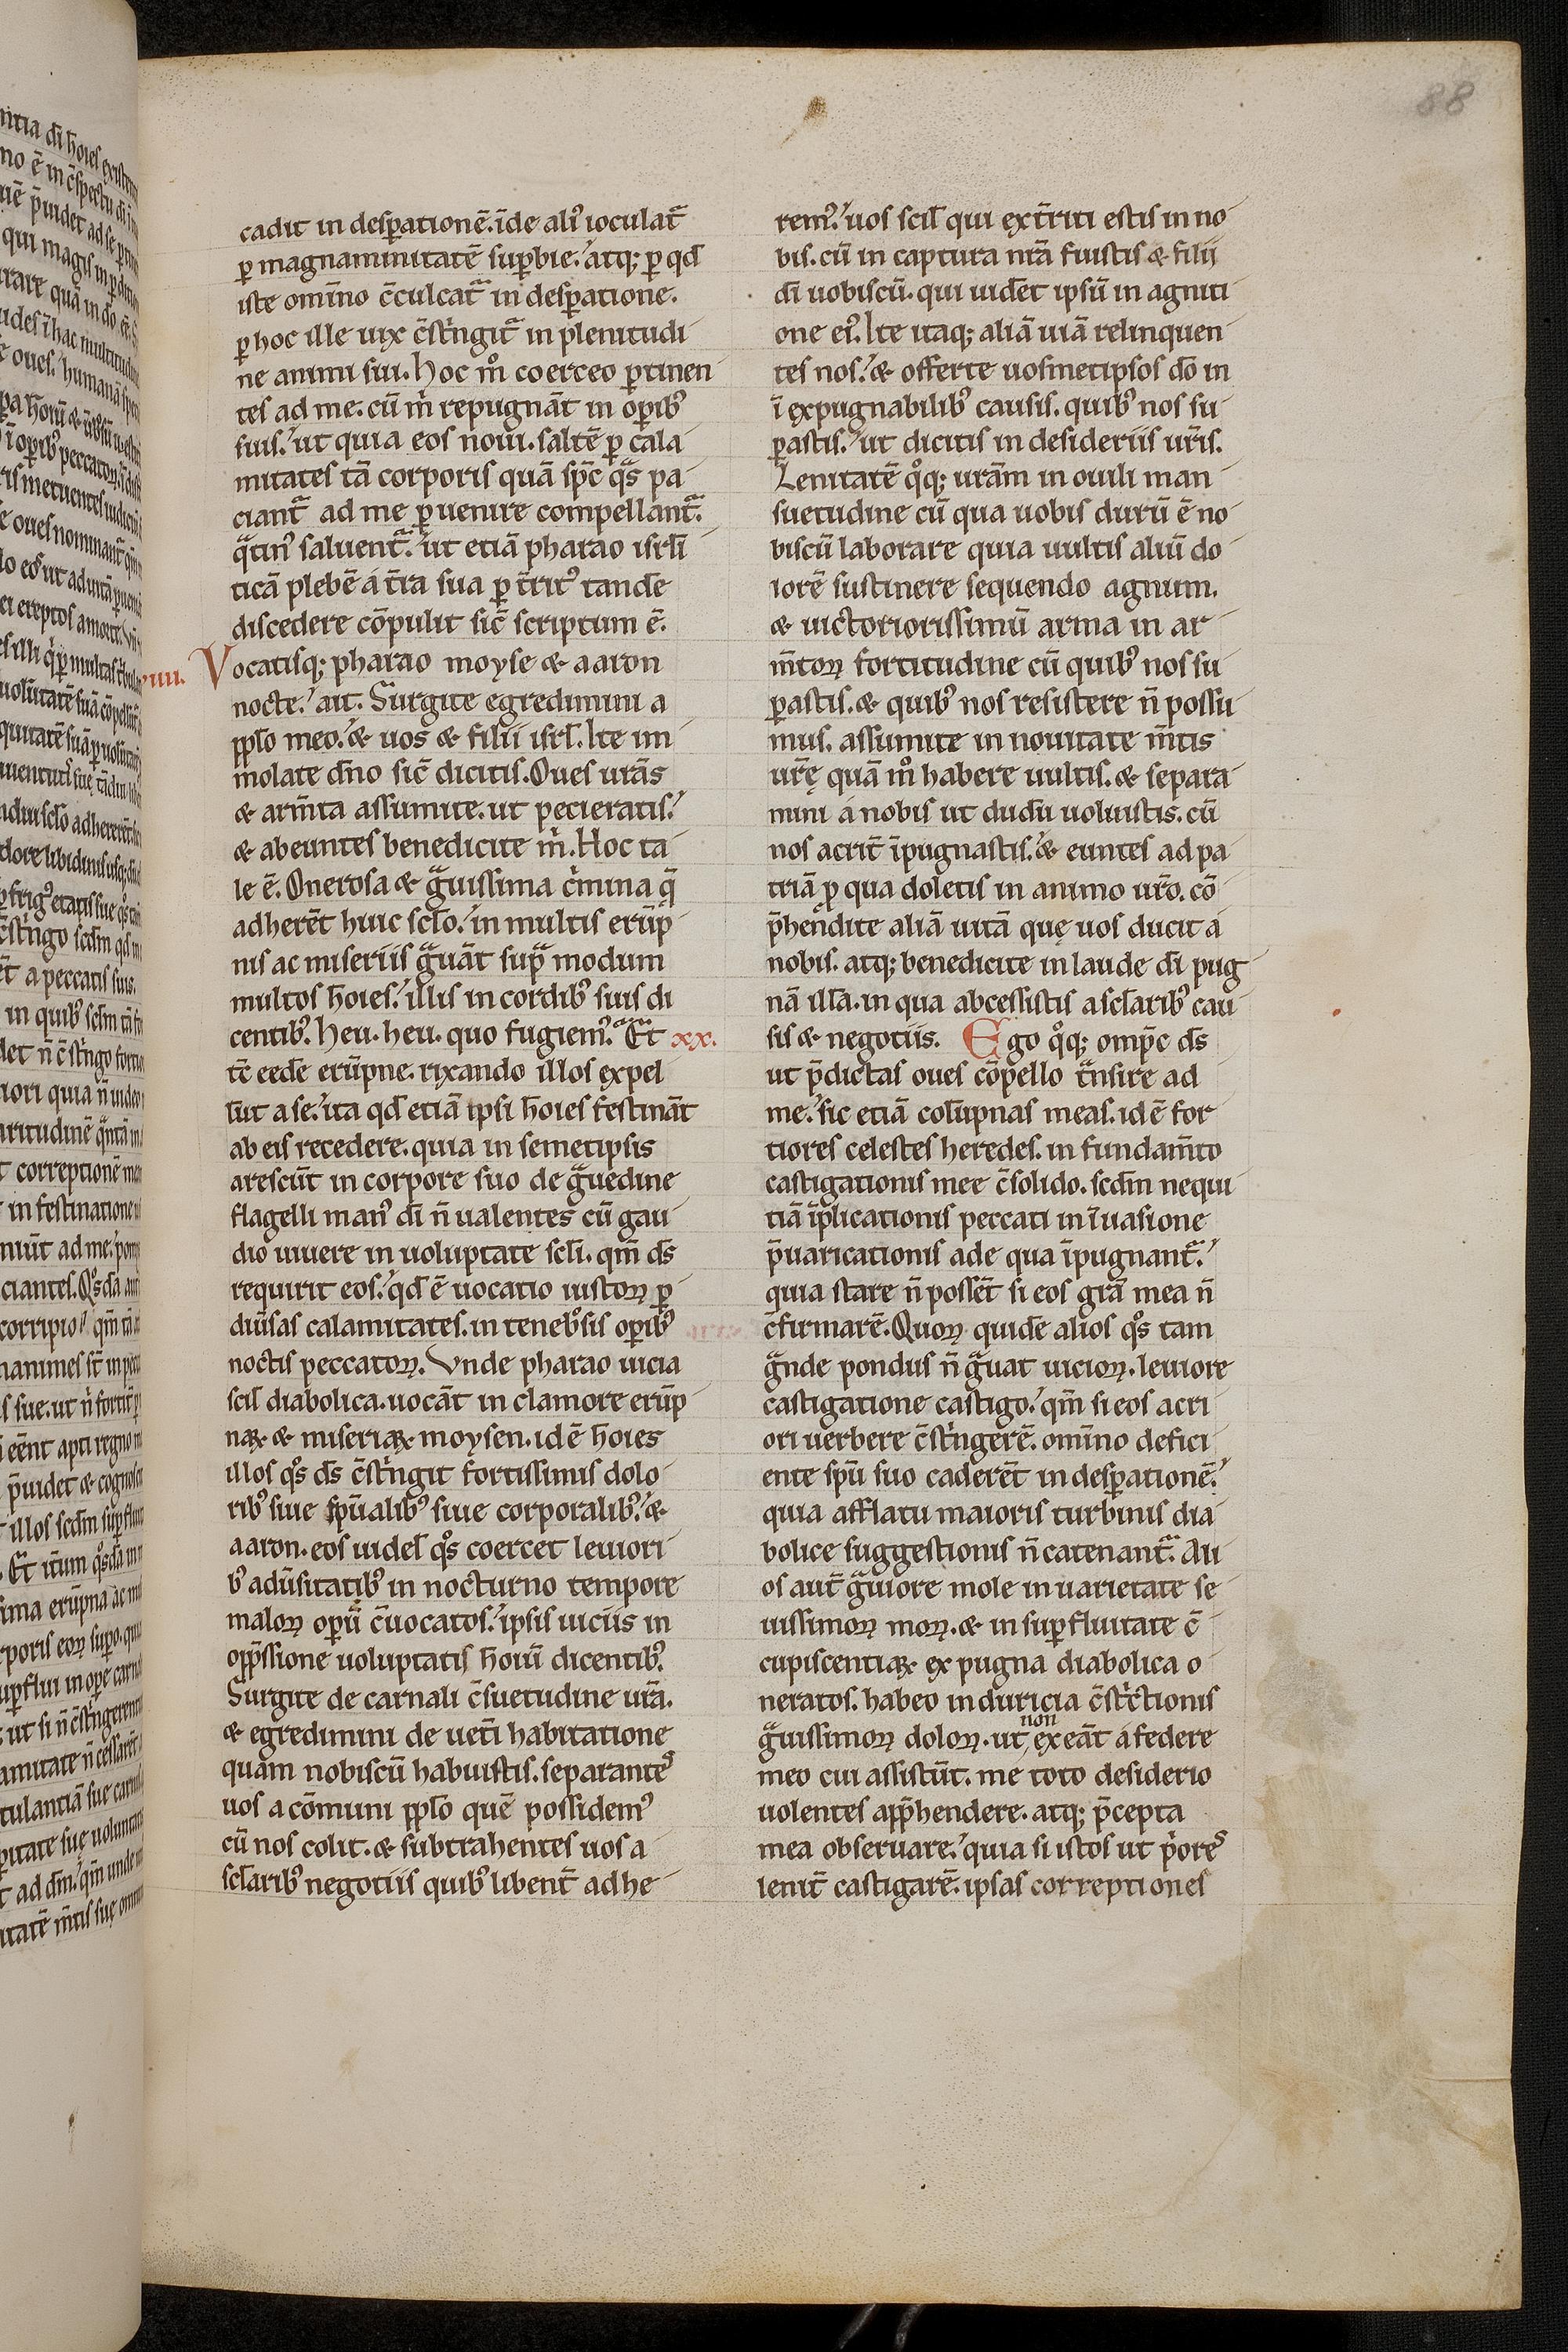 88
cadit in desꝑationē. īde aliꝰ ioculat᷑
ꝑ magnanimitatē suꝑbie. atq; ꝑ qd̄
iste omīno c̄culcat᷑ in desꝑatione.
ꝑ hoc ille uix c̄stͥngit᷑ in plenitudi
ne animi sui. Hoc mͦ coerceo ꝑtinen
tes ad me. cū mͥ repugnāt in oꝑibꝰ
suis. ut quia eos noui. saltē ꝑ cala
mitates tā corporis quā spc̄ qͣs pa
ciant᷑ ad me ꝑuenire compellant᷑.
qͣtinꝰ saluent᷑. ut etiā pharao isrl̄i
ticā plebē á t̄ra sua ꝑ t̄ritꝰ tandē
discedere cōpulit sic̄ scriptum ē.
uiiii. Vocatisq; pharao moyse & aaron
nocte. ait. Surgite egredimini a
ppl̄o meo. & uos & filii isrl̄. Ite im
molate dn̄o sic̄ dicitis. Oues urās
& arm̄ta assumite. ut pecieratis.
& abeuntes benedicite mͥ. Hoc ta
le ē. Onerosa & gͣuissima cͥmina q̄
adherēt huic scl̄o. in multis erūp
nis ac miseriis gͣuāt supͣ modum
multos hōies. illis in cordibꝰ suis di
centibꝰ. Heu. heu. quo fugiemꝰ. Et
tc̄ eedē erūpne. rixando illos expel
lūt a se. ita qd̄ etiā ipsi hōies festināt
ab eis recedere. quia in semetipsis
arescūt in corpore suo de gͣuedine
flagelli manꝰ di̅ n̄ ualentes cū gau
dio uiuere in uoluptate scl̄i. qm̄ ds̄
requirit eos. qd̄ ē uocatio iustoꝝ ꝑ
diūsas calamitates. in tenebͦsis oꝑibꝰ
noctis peccatoꝝ. Vnde pharao uicia
scil̄ diabolica. uocāt in clamore erūp
naꝝ & miseriaꝝ moysen. id ē hōies
illos qͦs ds̄ c̄stͥngit fortissimis dolo
ribꝰ siue spūalibꝰ siue corporalibꝰ. &
aaron. eos uidel̄ qͦs coercet leuiori
bꝰ adūsitatibꝰ in nocturno tempore
maloꝝ oꝑū c̄uocatos. ipsis uiciis in
opp̄ssione uoluptatis hoiū dicentibꝰ.
Surgite de carnali c̄suetudine urā.
& egredimini de uet̄i habitatione
quam nobiscū habuistis. separantes
uos a cōmuni ppl̄o quē possidemꝰ
cū nos colit. & subtrahentes uos a
scl̄aribꝰ negotiis quibꝰ libent̄ adhe
remꝰ. uos scil̄ qui ext̄riti estis in no
bis. cū in captura nrā fuistis & filii
di̅ uobiscū. qui uidēt ipsū in agniti
one eiꝰ. Ite itaq; aliā uiā relinquen
tes nos. & offerte uosmetipsos dō in
īexpugnabilibꝰ causis. quibꝰ nos su
ꝑastis. ut dicitis in desideriis urīs.
Lenitatē qͦq; urām in ouili man
suetudine cū qua uobis durū ē no
biscū laborare quia uultis aliū do
lorē sustinere sequendo agnum.
& uictoriorissimū arma in ar
m̄toꝝ fortitudine cū quibꝰ nos su
ꝑastis. & quibꝰ nos resistere n̄ possu
mus. assumite in nouitate m̄tis
urę̄ quā mͦ habere uultis. & separa
mini á nobis ut dudū uoluistis. cū
nos acrit̄ īpugnastis. & euntes ad pa
triā ꝑ qua doletis in animo urō. cō
p̄hendite aliā uitā quę uos ducit á
nobis. atq; benedicite in laude di̅ pug
nā illā. in qua abcessistis a scl̄aribꝰ cau
sis & negotiis. xx. Ego qͦq; omp̄c ds̄
ut p̄dictas oues cōpello tͣnsire ad
me. sic etiā colūpnas meas. id ē for
tiores celestes heredes. in fundam̄to
castigationis mee c̄solido. scdm̄ nequi
tiā īplicationis peccati in īuasione
p̄uaricationis ade qua īpugnant᷑.
quia stare n̄ possēt si eos grā mea n̄
c̄firmarē. Quoꝝ quidē alios qͦs tam
gͣnde pondus n̄ gͣuat uicioꝝ. leuiore
castigatione castigo. qm̄ si eos acri
ori uerbere c̄stͥngerē. omīno defici
ente spū suo caderēt in desꝑationē.
quia afflatu maioris turbinis dia
bolice suggestionis n̄ catenant᷑. Ali
os aut̄ gͣuiore mole in uarietate se
uissimoꝝ moꝝ. & in suꝑfluitate c̄
cupiscentiaꝝ ex pugna diabolica o
neratos. habeo in duricia c̄stͥctionis
gͣuissimoꝝ doloꝝ. ut non exeāt á federe
meo cui assistūt. me toto desiderio
uolentes app̄hendere. atq; p̄cepta
mea obseruare. quia si istos ut pͥores
lenit̄ castigarē. ipsas correptiones